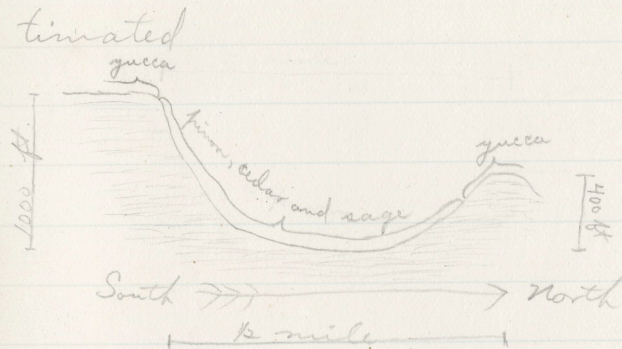 timated
yucca
piñon, cedar and sage
yucca
1000 ft
400 ft
South
North
1/2 mile